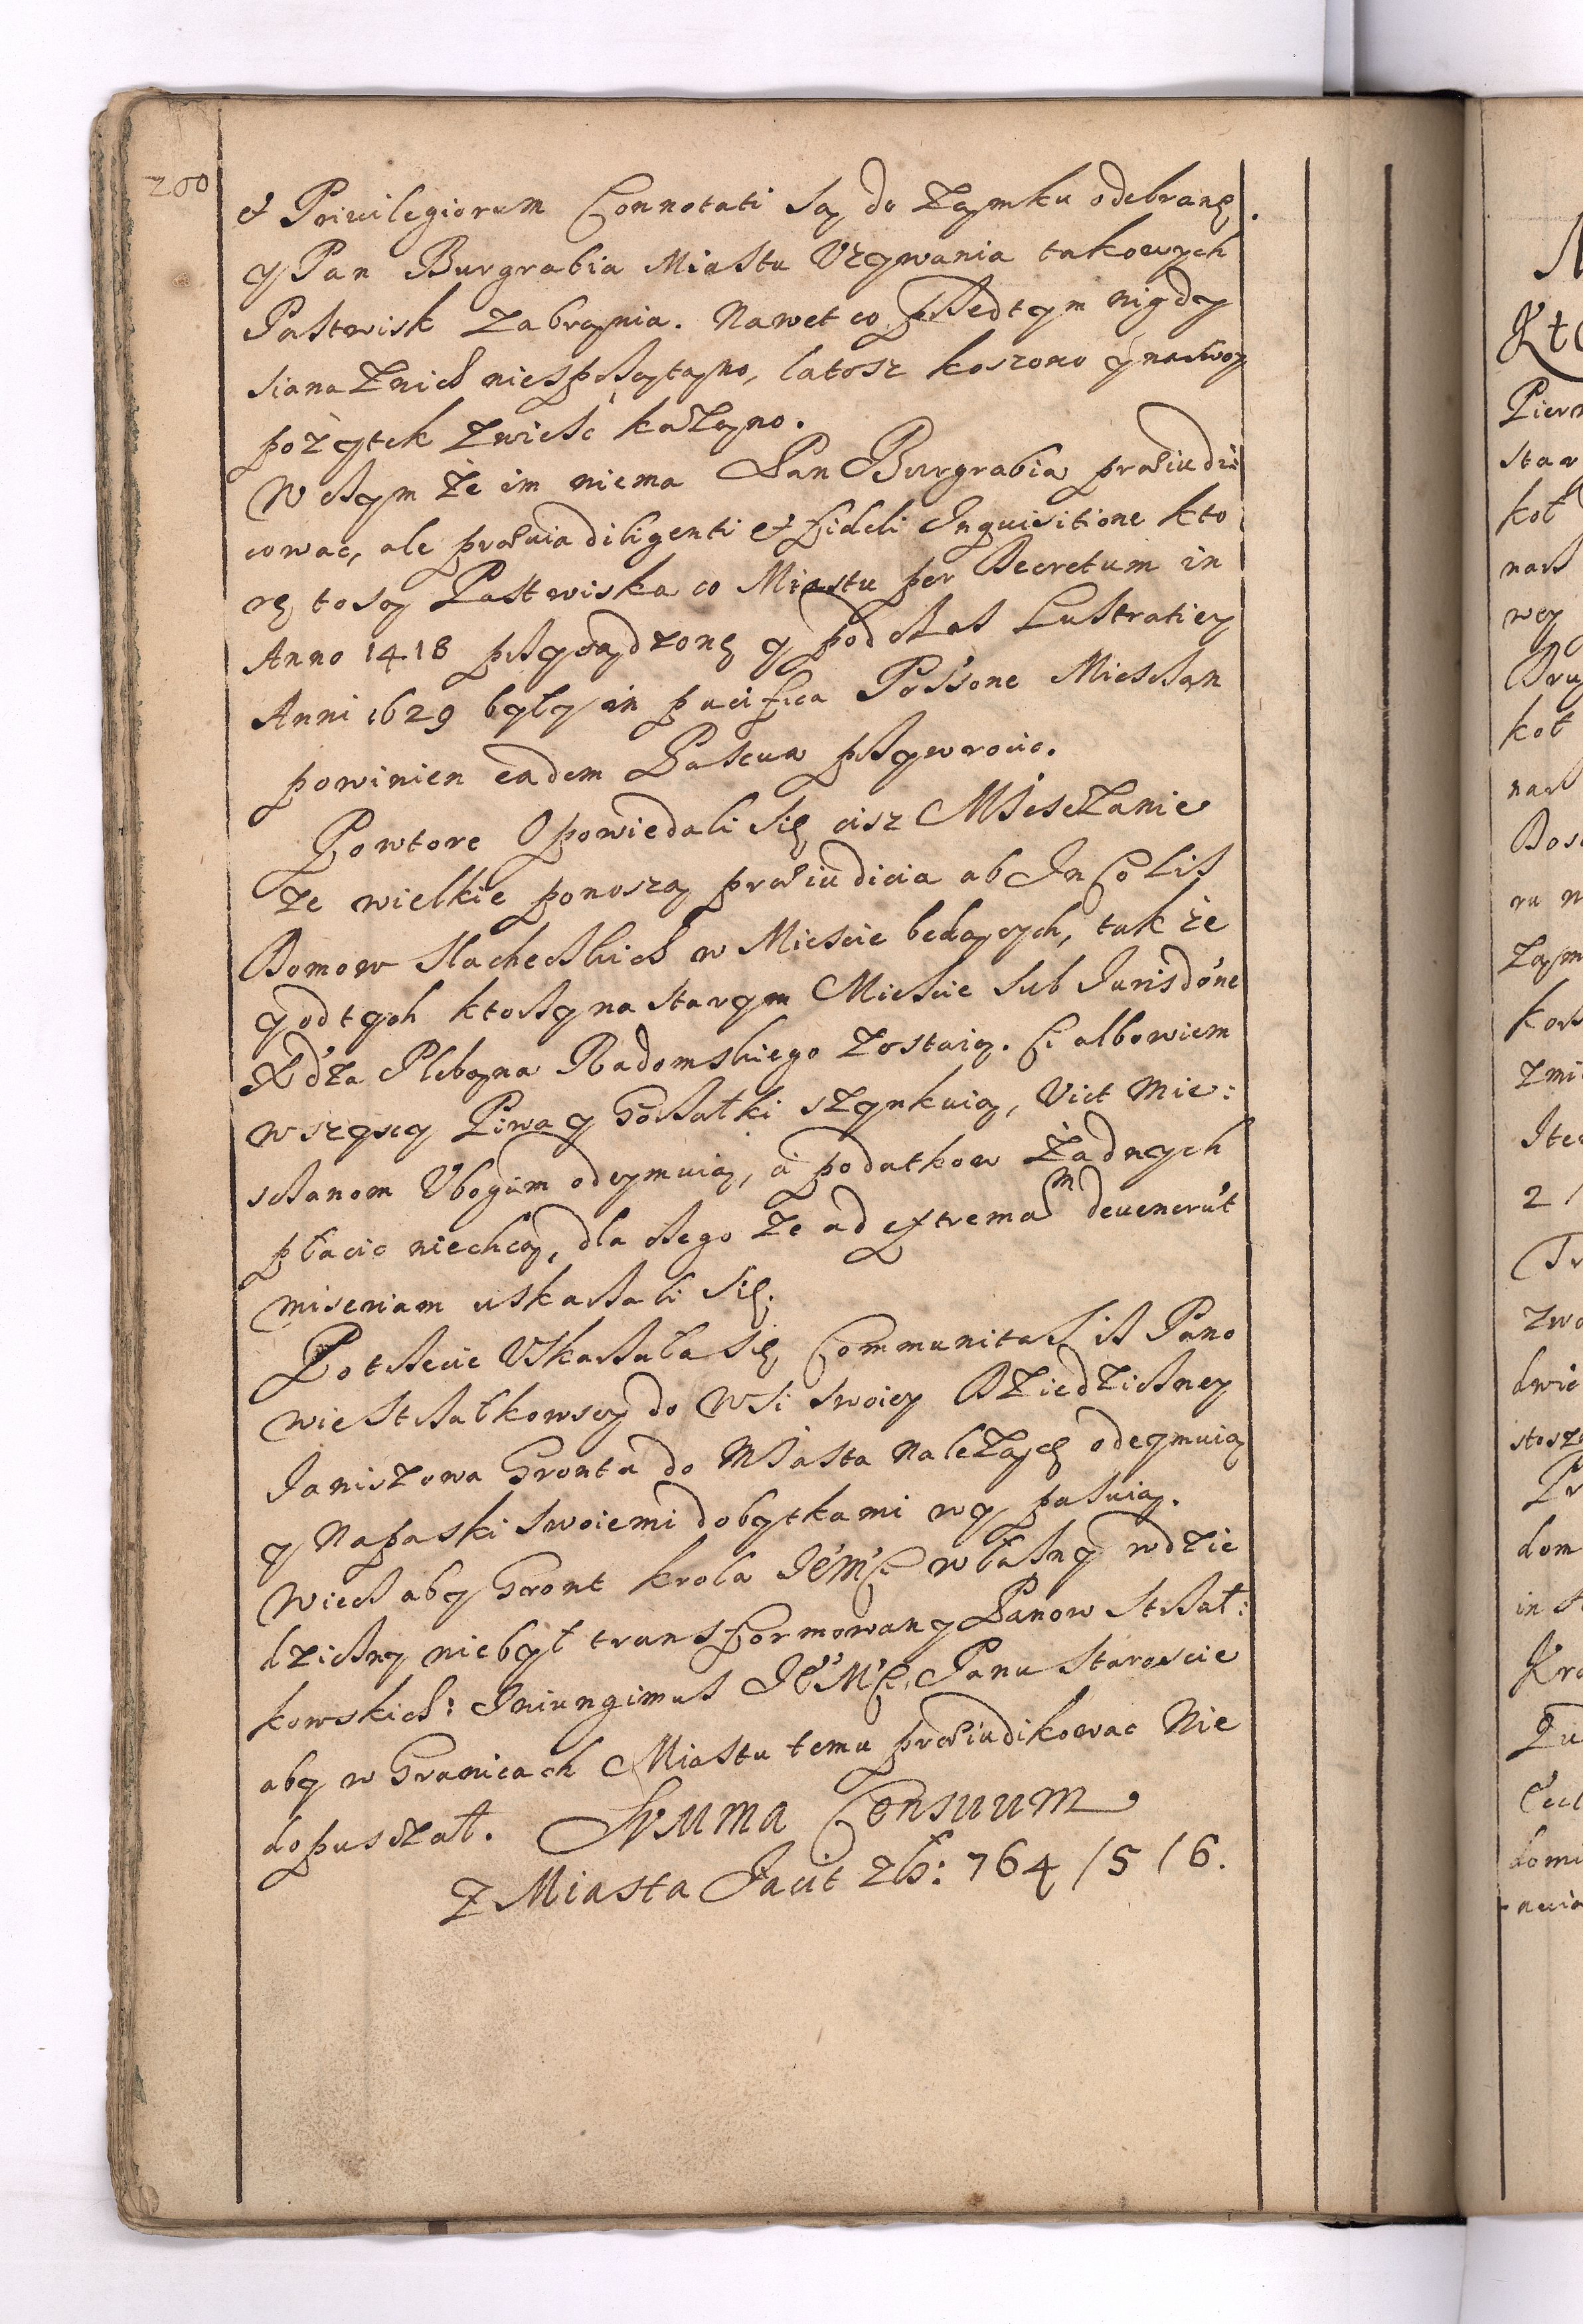 200
et Priuilegiorum Connotati są do Ząmku odebranę.
y Pan Burgrabia Miastu Vzywania takowych
Pastwisk zabrąnia. Nawet co przedtym nigdy
siana znich niesprzątąno, latosz koszono y na swoy
pożytek zwieść kaząno.
W czym że im niema Pan Burgrabia præiudi
cowac, ale præuia diligenti et fideli Inquisitione kto
rę to są Pastwiska co Miastu per Decretum in
Anno 1418 przysądzonę y podczas Lustratiey
Anni 1629 były in pacifica Poss'one Miesczan
powinien eadem Pascua przywrocic.
Powtore Opowiedali się cisz Miesczanie
że wielkie ponoszą præiudicia ab Incolis
Domow slacheckich w Miescie bedących, tak że
y od tych ktorzy na starym Miescie sub Jurisd'one
Xdza Plebąna Radomskiego zostaią. Ci albowiem
wszyscy Piwa y Gorzałki szynkuią, Vict Mie:
sczanom Vbogim odeymuią, a podatkow żadnych
płacic niechcą, dla czego że ad extremam deuenerut
miseriam uskarzali się.
Potrzecie Vskarzała się Communitas is Pano
wie Strzałkowscy do Wsi swoiey Dziedziczney
Janiszowa Gronta do Miasta należącę odeymuią
y Napaski swoiemi dobytkami wypasuią.
Wiecz aby Gront krola JeMCi własny wdzie
dziczny niebył transformowany Panow Strzał:
kowskich: Iniungimus JeMCi Panu staroscie
aby w Granicach Miastu temu præiudikowac Nie
dopuszczał. Summa Censuum
Z Miasta Facit zł: 764 / 5 / 6.